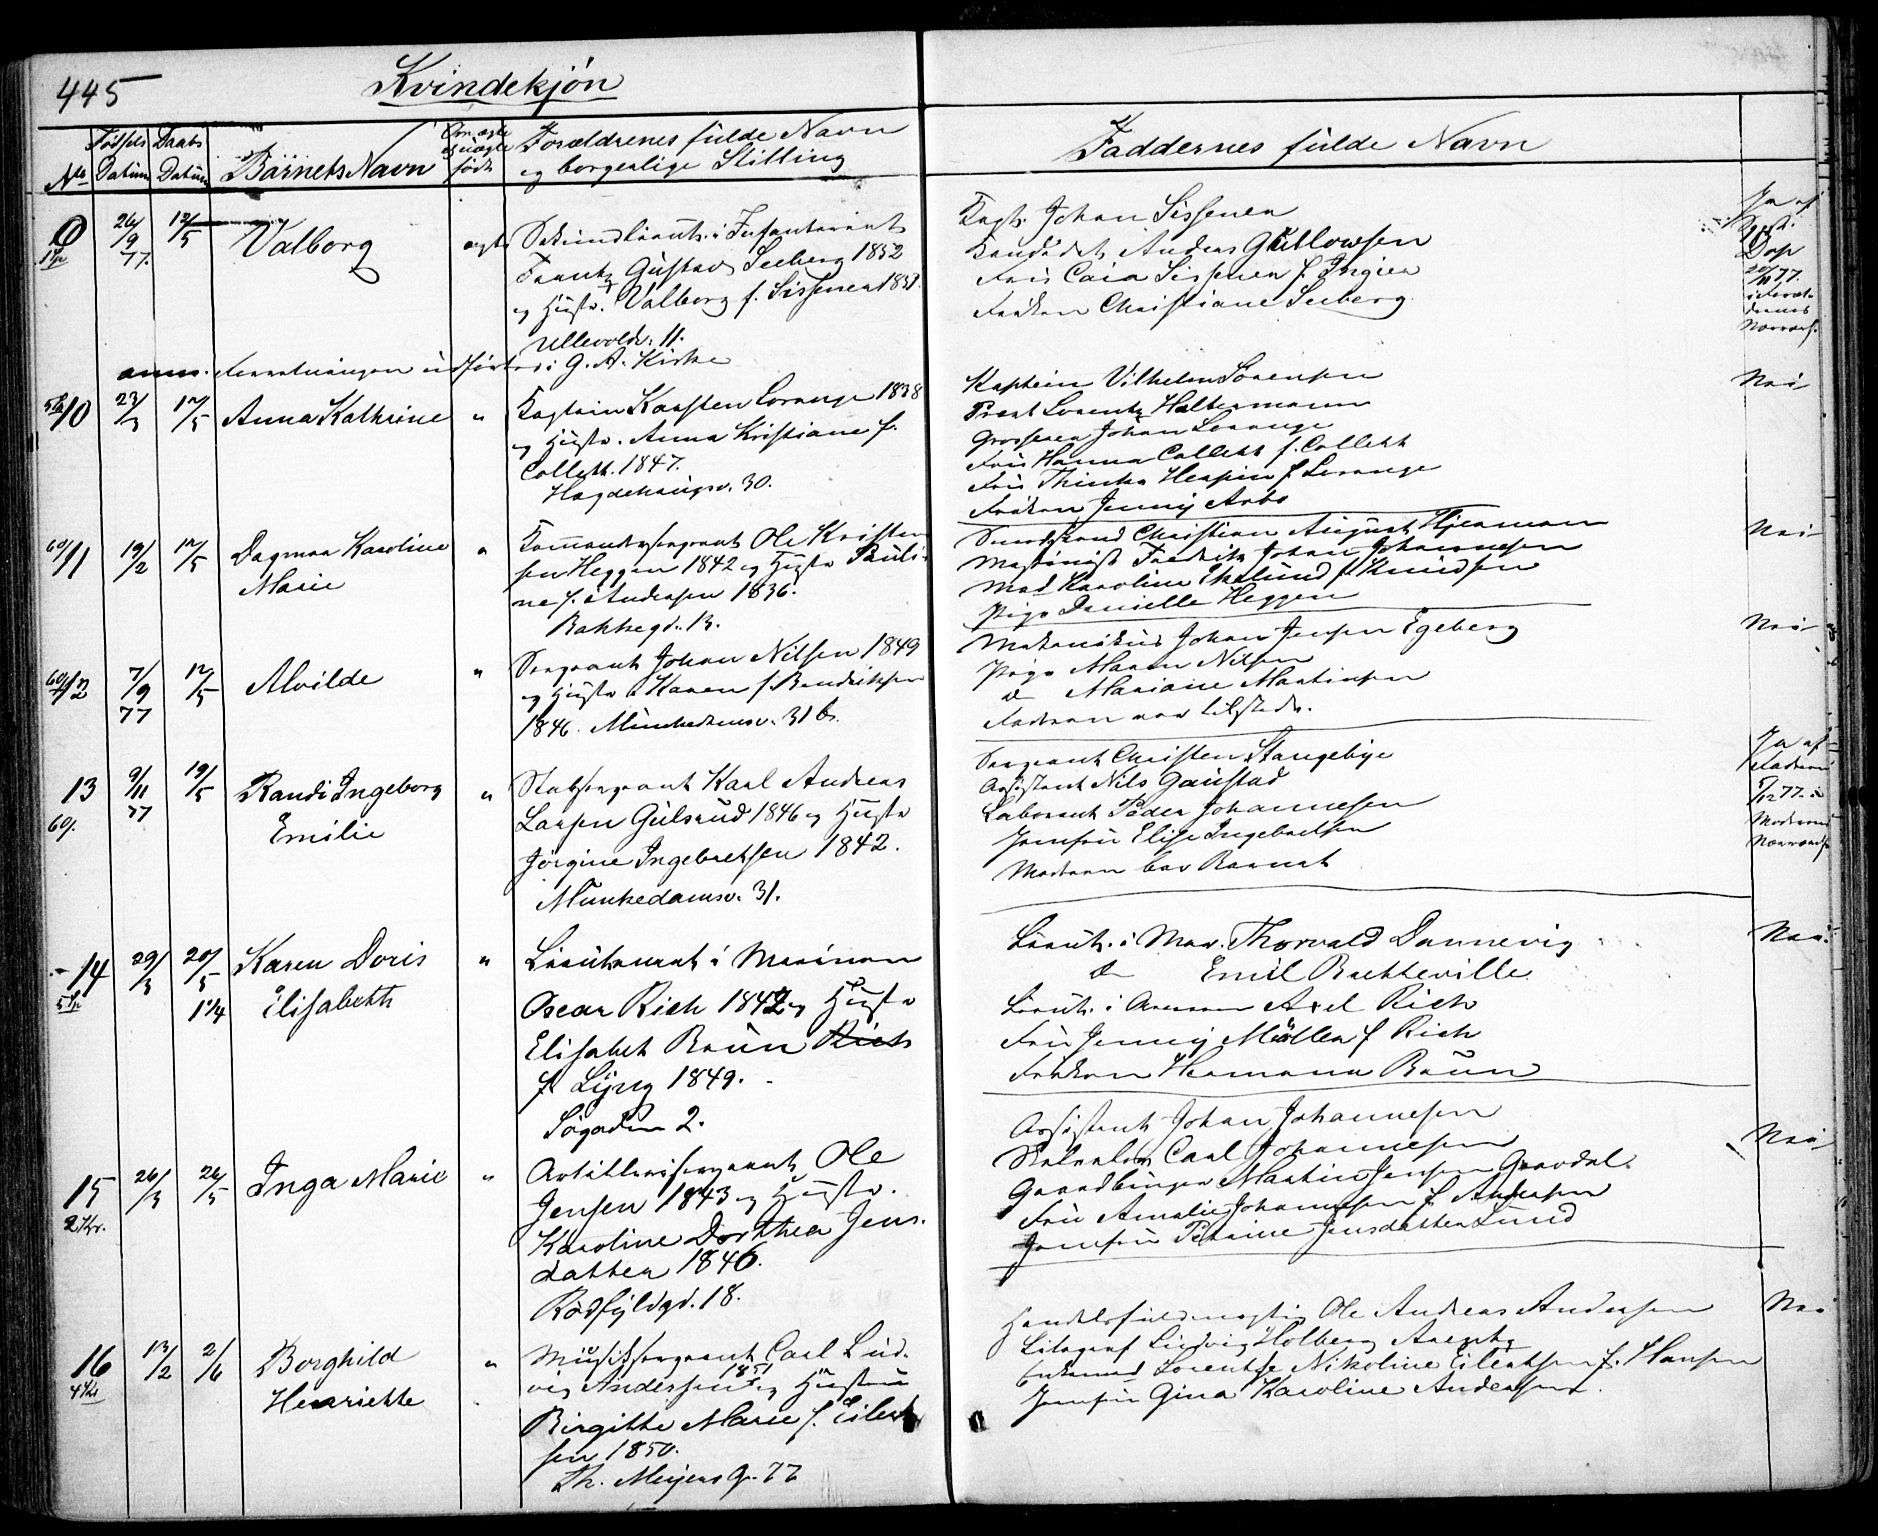 445
Kvindekjön
No
Födsels Datum
Daabs Datum
Barnets Navn
Om ægte
uægte
födt
Forældrenes fulde Navn
og borgerlige Stilling
Faddernes fulde Navn
26/9 77.
12/5
Valborg
ægte
Sekundlieutn. i Infanteriet
Frantz Gustav Seeberg 1852
og Hustr. Valborg f. Sissener 1851.
Ullevoldsv. 11.
Kapt. Johan Sissener
Kandidat Anders Gulowsen
Fru Caia Sissener f. Ingier
Fröken Christiane Seeberg
Ja af
Dop
77
i Foræl-
drenes
Nærværelse.
anm. Forretningen udförtes i G. A. Kirke
10
23/3
12/5
Anna Kathrine
"
Kaptein Karsten Lorange 1838
og Hustr. Anna Kristiane f.
Collett. 1847.
Hægdehaugsv. 30.
Kaptein Vilhelm Sörensen
Præst Lorentz Haltermann
Grosserer Johan Lorange
Fru Hanna Collett f. Collett
Fru Thinka f. Lorange
Fröken Jenny Arbo
Nei
60/
11
19/2
12/5
Dagmar Karoline
Marie
"
Kommandersergeant Ole Kristen-
sen Heggen 1842 og Hustr Pauli-
ne f. Andersen 1836.
Bakkegd. 13.
Smedsvend Christian August Hjermann
Maskinist Fredrik Johan Johannesen
Mad Karoline Eklund f. Knudsen
Pige Danielle Heggen
Nei
60/
12
7/9 77
12/5
Alvilde
"
Sergeant Johan Nilsen 1849
og Hustr Karen f. Bendriksen
1846. Munkedamsv. 31 b.
Mekanikus Johan Jensen Egeberg
Pige Maren Nilsen
do Mariane Martinsen
Faderen var tilstede.
Nei
13
60/.
9/11 77
19/5
Randi Ingeborg
Emilie
"
Stabsergeant Karl Andreas
Larsen Gulsrud 1846 og Hustr
Jörgine Ingebretsen 1842.
Munkedamsv. 31.
Sergeant Christen Stangebye
Assistent Nils Gaustad
Laborant Peder Johannesen
Jomfru Elise Ingebretsen
Moderen bar Barnet
Ja af
Faderen
5/12 77 i
Moderens
Nærværelse
14
29/3
20/5
Karen Doris
Elisabeth
"
Lieutenant i Marinen
Oscar Rich 1842 og Hustr
Elisabet Bruun Rich
f. Lyng 1849.
Søgaden 2.
Lieut. i Mar. Thorvald Dannevig
do Emil Bretteville
Lieut. i Armeen Axel Rich
Fru Jenny Möller f Rich
Fröken Hermana Bruun
Nei.
15
2 Kr.
26/3
26/5
Inga Marie
"
Artillerisergeant Ole
Jensen 1843 og Hustr.
Karoline Dorthea Jens-
datter 1846.
Rödfyldgd. 18.
Assistent Johan Johannesen
Carl Johannesen
Gaardbruger Martin Jensen Graydal.
Fru Amalie Johannesen f. Andersen
Jomfru Petrine Jensdatter Lund
Nei
16
4 Kr
13/2
2/6
Borghild
Henriette
"
Musiksergeant Carl Lud-
vig Andersen 1851 og Hustru
Birgitte Marie f. Eilert
sen 1850.
Th. Meyers G. 77
Handelsfuldmægtig Ole Andreas Andersen
Litograf Ludvig Holberg
Lorentse Nikoline Eilertsen f. Hansen
Jomfru Gina Karoline Andersen.
Nei